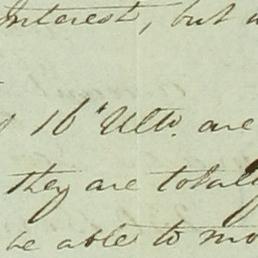 Interest, but
16 Ulto. are
they are total
be able to mo